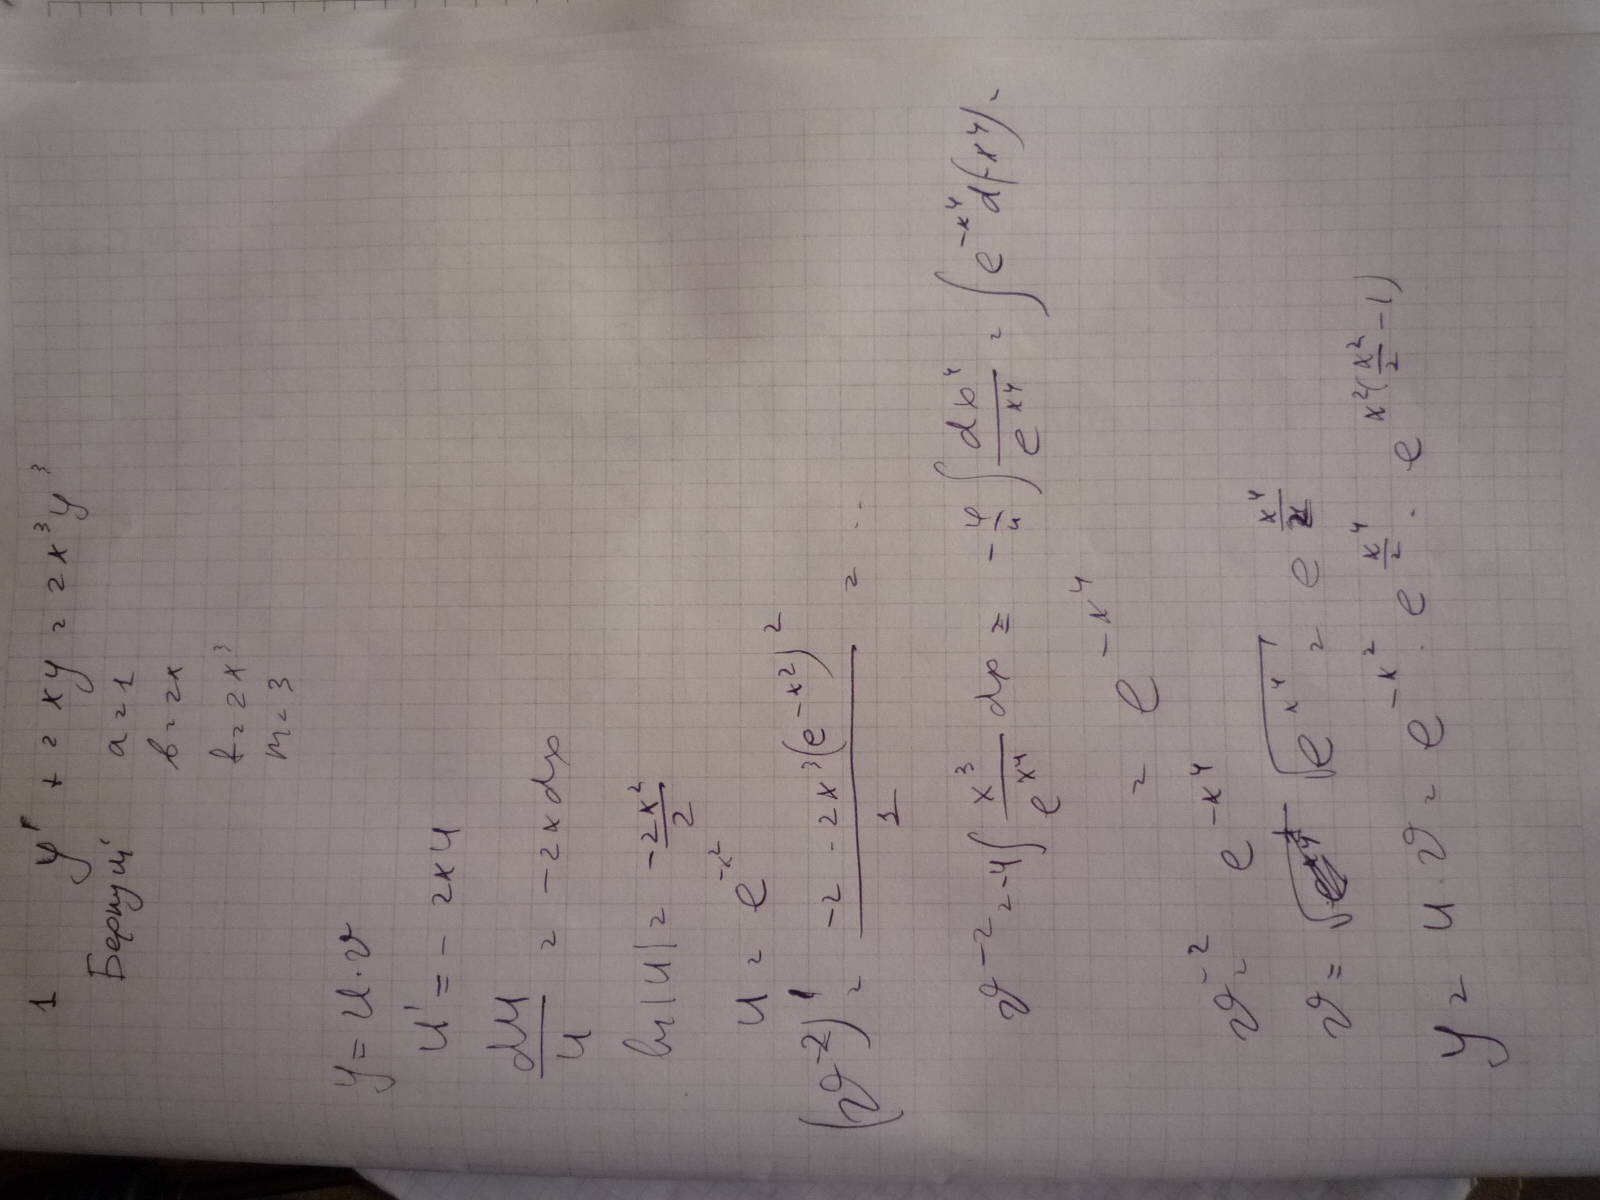 1 y' + 2xy = 2x³y³
Бернулі
a = 1
b = 2x
f = 2x³
m = 3
y = u·v
u' = - 2xu
du/u = -2x dx
ln|u| = -2x²/2
u = e^(-x²)
(v^(-2))' = -2·2x³(e^(-x²))²/1 = ...
v^(-2) = -4∫ x³/e^(x⁴) dx = -4/4 ∫ dx⁴/e^(x⁴) = ∫ e^(-x⁴) d(-x⁴) =
= e^(-x⁴)
v^(-2) = e^(-x⁴)
v = √(e^(x⁴)) = e^(x⁴/2)
y = u·v = e^(-x²) · e^(x⁴/2) = e^(x²(x²/2 - 1))